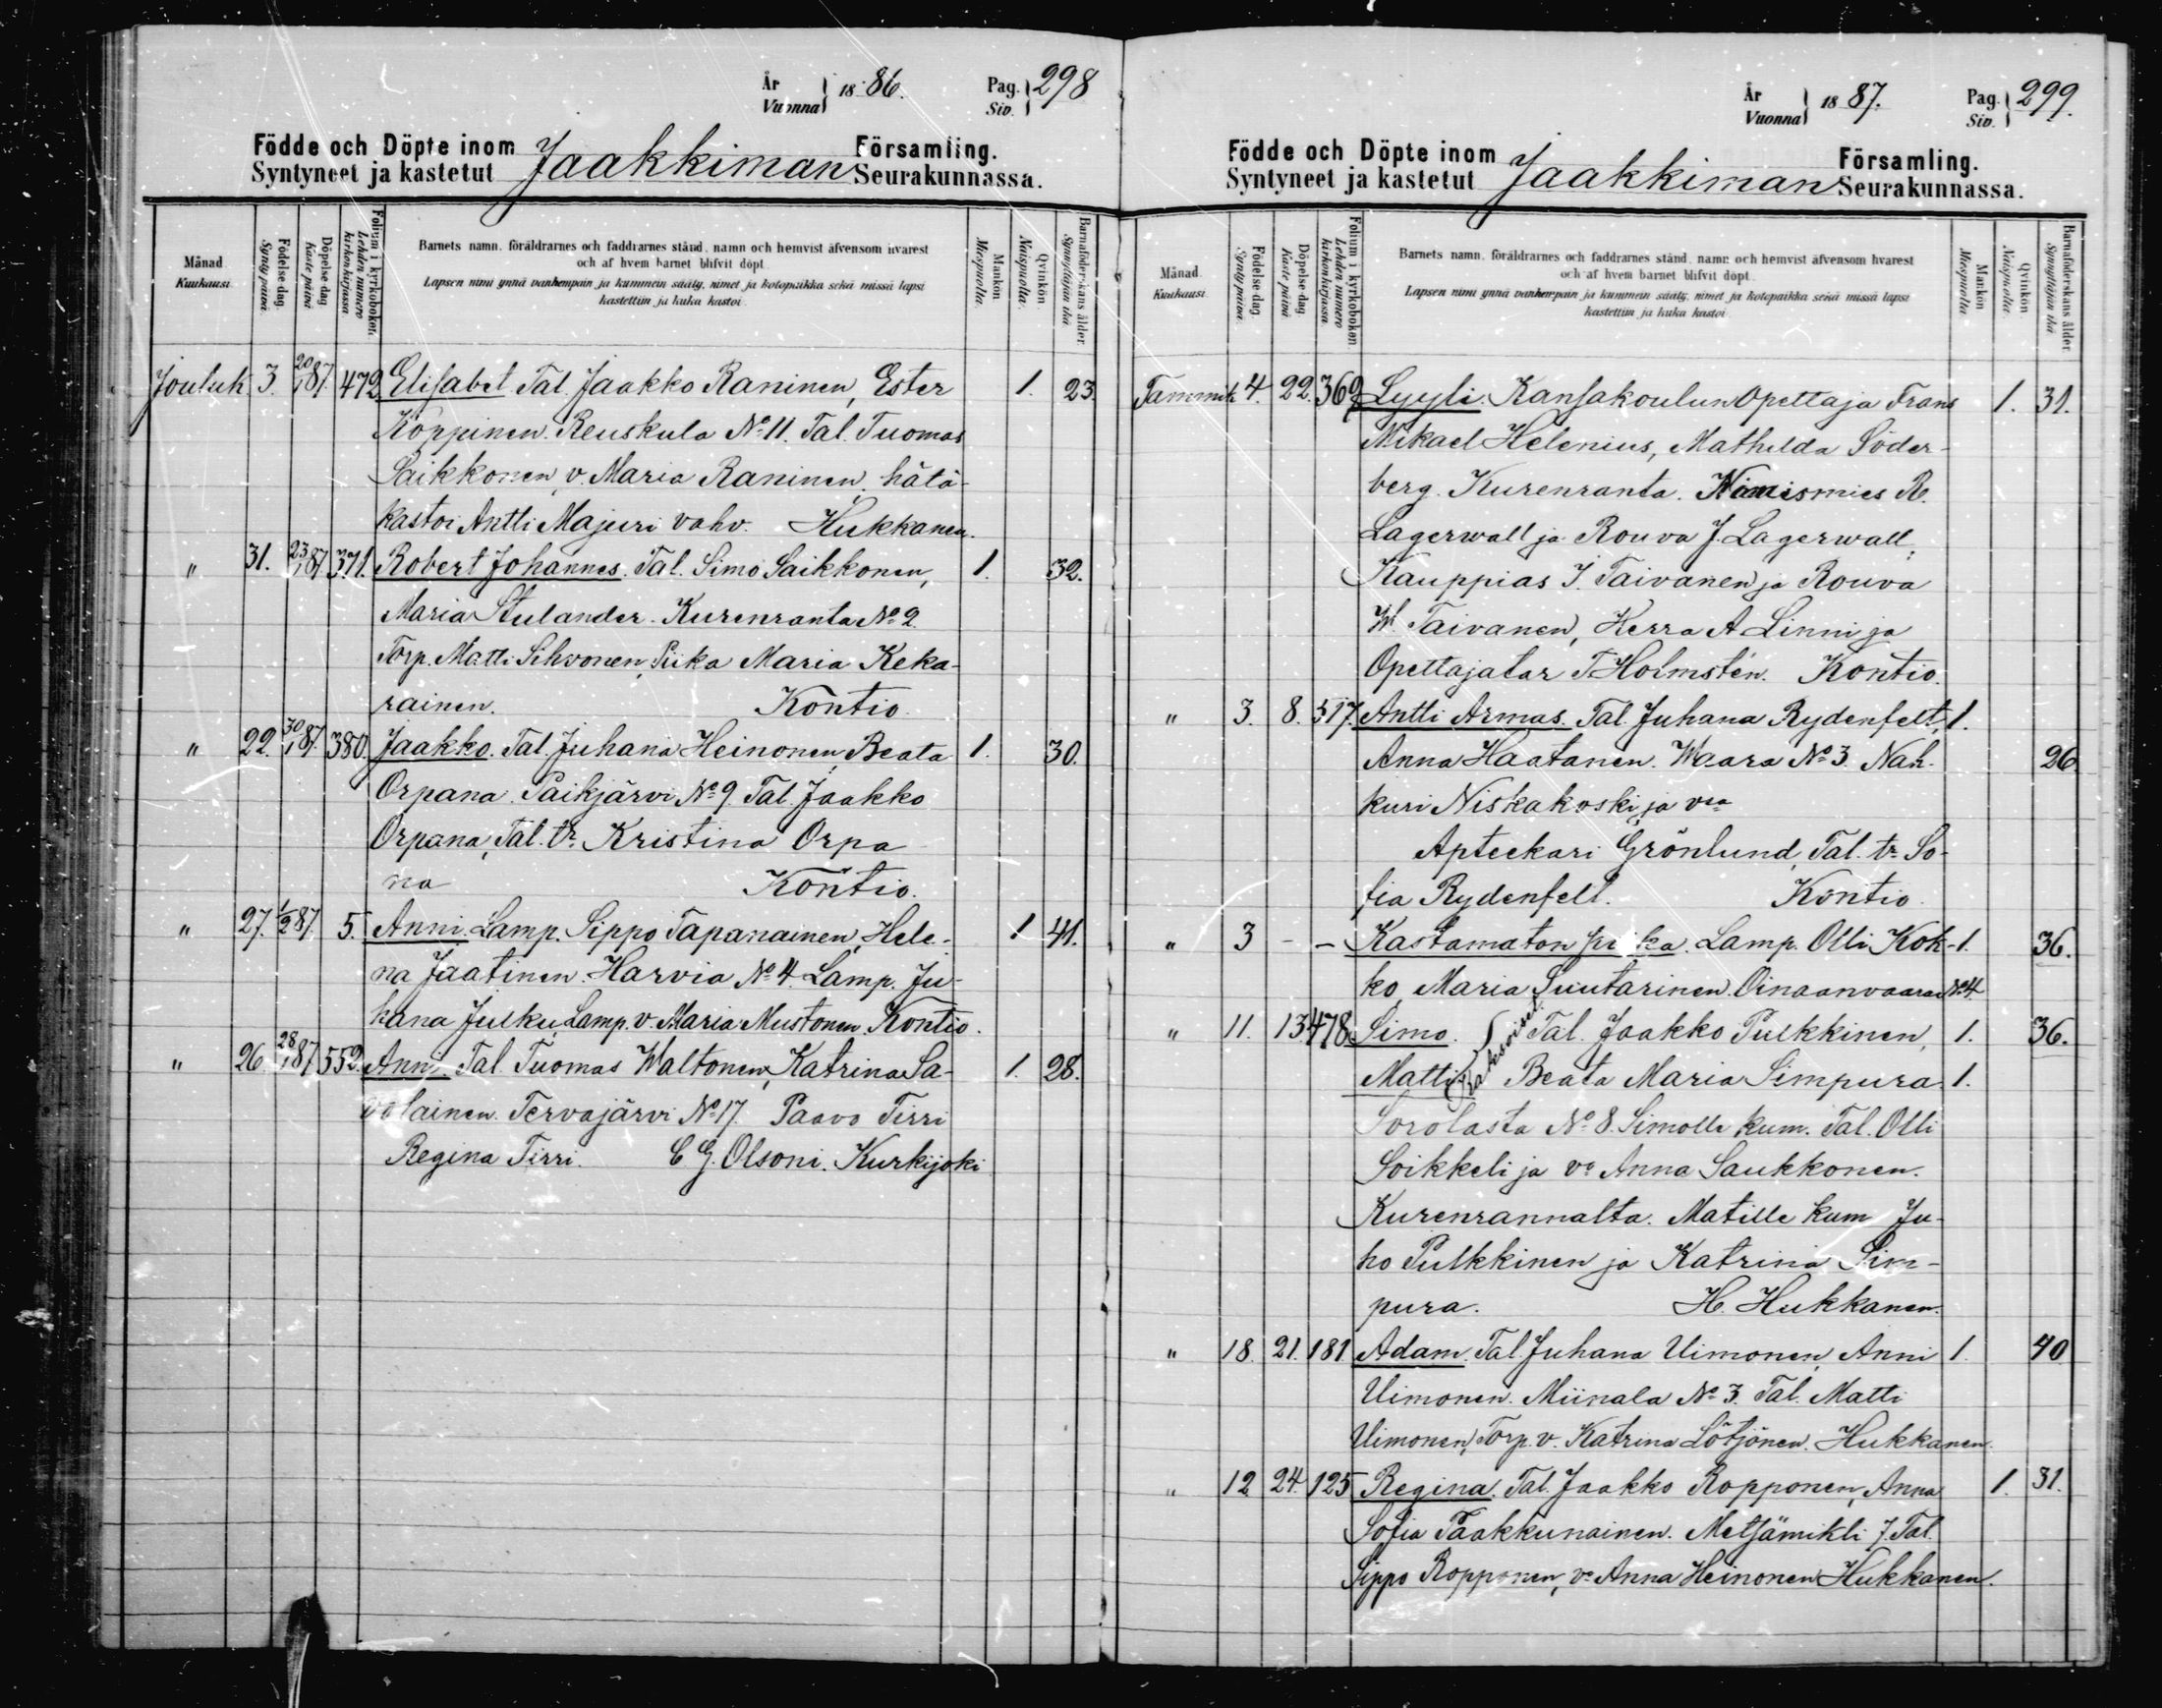 År
Vuonna } 1886. Pag.
Siv. } 298
Födde och Döpte inom Jaakkiman Församling.
Syntyneet ja kastetut Seurakunnassa.
Månad
Kuukausi
Födelse-dag
Syntypäivä
Döpelse-dag
Kaste päivä
Folium i kyrkoboken.
Lehden numero kirkonkirjassa
Barnets namn, föräldrarnes och faddrarnes stånd, namn och hemvist äfvensom hvarest
och af hvem barnet blifvit döpt
Lapsen nimi ynnä vanhempain ja kummein sääty, nimet ja kotopaikka sekä missä lapsi
kastettiin ja kuka kastoi
Mankön.
Miespuolia.
Qvinkön
Naispuolia.
Barnaföderskans ålder.
Synnyttäjän ikä
Jouluk. 3. 20/1 87. 472. Elisabet Tal. Jaakko Raninen, Ester 1. 23.
Koppinen. Reuskula No 11. Tal. Tuomas
Saikkonen, v. Maria Raninen, hätä-
kastoi Antti Majuri vahv. Hukkanen.
" 31. 23/1 87 371. Robert Johannes. Tal. Simo Saikkonen, 1. 32.
Maria Stulander. Kurenranta No 2.
Torp. Matti Sihvonen, Piika Maria Keka-
rainen. Kontio.
" 22. 30/1 87. 380. Jaakko. Tal. Juhana Heinonen, Beata 1. 30.
Orpana. Paikjärvi No 9. Tal. Jaakko
Orpana, Tal. tr. Kristina Orpa
na Kontio.
" 27. 1/2 87. 5. Anni. Lamp. Sippo Tapanainen, Hele- 1 41.
na Jaatinen. Harvia No 4. Lamp. Ju-
hana Julku, Lamp. v. Maria Mustonen. Kontio.
" 26. 28/1 87 552. Anni. Tal. Tuomas Waltonen, Katrina Sa- 1. 28.
volainen. Tervajärvi No 17. Paavo Tirri
Regina Tirri. C G. Olsoni. Kurkijoki
År
Vuonna } 1887. Pag.
Siv. } 299.
Födde och Döpte inom Jaakkiman Församling.
Syntyneet ja kastetut Seurakunnassa.
Månad
Kuukausi
Födelse-dag
Syntypäivä
Döpelse-dag
Kaste päivä
Folium i kyrkoboken
Lehden numero kirkonkirjassa
Barnets namn, föräldrarnes och faddrarnes stånd, namn och hemvist äfvensom hvarest
och af hvem barnet blifvit döpt
Lapsen nimi ynnä vanhempain ja kummein sääty, nimet ja kotopaikka sekä missä lapsi
kastettiin ja kuka kastoi
Mankön
Miespuolia
Qvinkön
Naispuolia.
Barnaföderskans ålder.
Synnyttäjän ikä
Tammik 4. 22. 369 Lyyli. Kansakoulun Opettaja Frans 1. 31.
Mikael Helenius, Mathilda Söder-
berg. Kurenranta. Nimismies R.
Lagerwall ja Rouva J. Lagerwall,
Kauppias J. Taivanen ja Rouva
W. Taivanen, Herra A Linni ja
Opettajatar T. Holmstén. Kontio.
" 3. 8. 517. Antti Armas. Tal. Juhana Rydenfelt, 1.
Anna Haatanen. Waara No 3. Nah- 26
kuri Niskakoski ja vsa
Apteekari Grönlund, Tal. tr. So-
fia Rydenfelt. Kontio.
" 3 - - Kastamaton poika. Lamp. Olli Kok- 1. 36.
ko, Maria Suutarinen. Oinaanvaara No 4.
" 11. 13. 478. Simo. Tal. Jaakko Pulkkinen, 1. 36.
Kaksoiset
Matti Beata Maria Simpura 1.
Sorolasta No 8. Simolle kum. Tal. Olli
Soikkeli ja vo Anna Saukkonen.
Kurenrannalta. Matille kum Ju-
ho Pulkkinen ja Katrina Sim-
pura. H. Hukkanen.
" 18. 21. 181 Adam. Tal. Juhana Uimonen, Anni 1. 40
Uimonen. Miinala No 3. Tal. Matti
Uimonen, Torp. v. Katrina Lötjönen. Hukkanen.
" 12 24. 125 Regina. Tal. Jaakko Ropponen, Anna 1. 31.
Sofia Paakkunainen. Metsämikli 7. Tal.
Sippo Ropponen, vo Anna Heinonen Hukkanen.